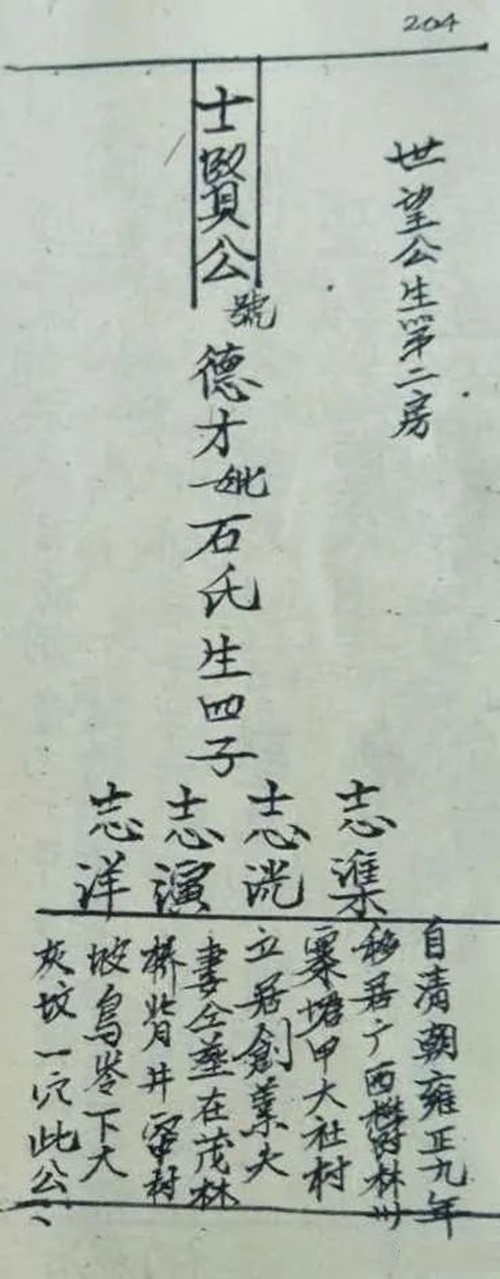 204
世望公生第二房
士賢公號德才妣石氏生四子
志準
志洸
志演
志洋
自清朝雍正九年
移居广西欝林州
寨塘甲大社村
立居創業夫
妻仝塟在茂林
橋背井窜村
坡鳥岺下大
灰坟一穴此公